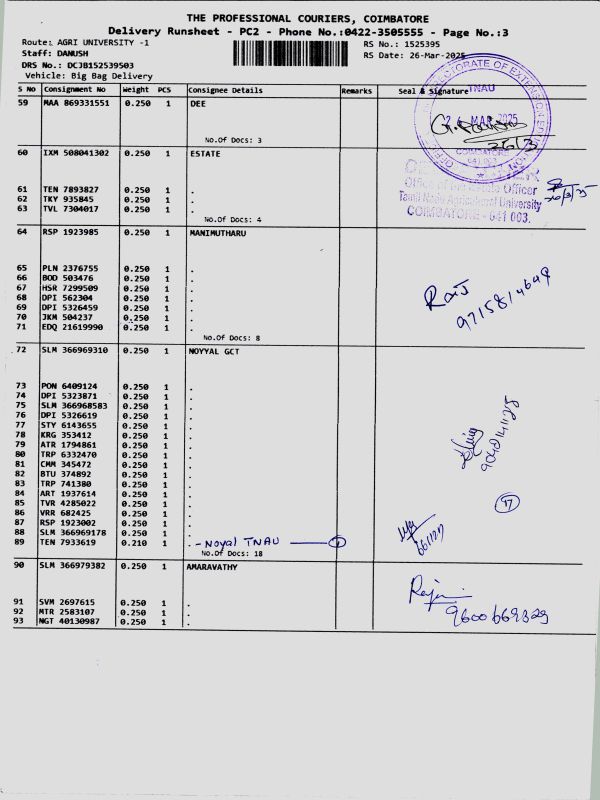 THE PROFESSIONAL COURIERS, COIMBATORE
Delivery Runsheet - PC2 - Phone No.:0422-3505555 - Page No.:3
Route: AGRI UNIVERSITY -1
RS No.: 1525395
Staff: DANUSH
RS Date: 26-Mar-2025
DRS No.: DCJB152539503
Vehicle: Big Bag Delivery
S No Consignment No Weight PCS Consignee Details Remarks Seal & Signature
59 MAA 869331551 0.250 1 DEE
No.Of Docs: 3
60 IXM 508041302 0.250 1 ESTATE
61 TEN 7893827 0.250 1 .
62 TKY 935845 0.250 1 .
63 TVL 7304017 0.250 1 .
No.Of Docs: 4
64 RSP 1923985 0.250 1 MANIMUTHARU
65 PLN 2376755 0.250 1 .
66 BOD 503476 0.250 1 .
67 HSR 7299509 0.250 1 .
68 DPI 562304 0.250 1 .
69 DPI 5326459 0.250 1 .
70 JKM 504237 0.250 1 .
71 EDQ 21619990 0.250 1 .
No.Of Docs: 8
72 SLM 366969310 0.250 1 NOYYAL GCT
73 PON 6409124 0.250 1 .
74 DPI 5323871 0.250 1 .
75 SLM 366968583 0.250 1 .
76 DPI 5326619 0.250 1 .
77 STY 6143655 0.250 1 .
78 KRG 353412 0.250 1 .
79 ATR 1794861 0.250 1 .
80 TRP 6332470 0.250 1 .
81 CMM 345472 0.250 1 .
82 BTU 374892 0.250 1 .
83 TRP 741380 0.250 1 .
84 ART 1937614 0.250 1 .
85 TVR 4285022 0.250 1 .
86 VRR 682425 0.250 1 .
87 RSP 1923002 0.250 1 .
88 SLM 366969178 0.250 1 .
89 TEN 7933619 0.210 1 . - Noyal TNAU 1
No.Of Docs: 18
90 SLM 366979382 0.250 1 AMARAVATHY
91 SVM 2697615 0.250 1 .
92 MTR 2583107 0.250 1 .
93 NGT 40130987 0.250 1 .
TNAU
26 MAR 2025
26/3
COIMBATORE
641 003
Office of the Estate Officer
Tamil Nadu Agricultural University
COIMBATORE - 641 003.
26/3/25
Raj
9715814649
17
9600669329